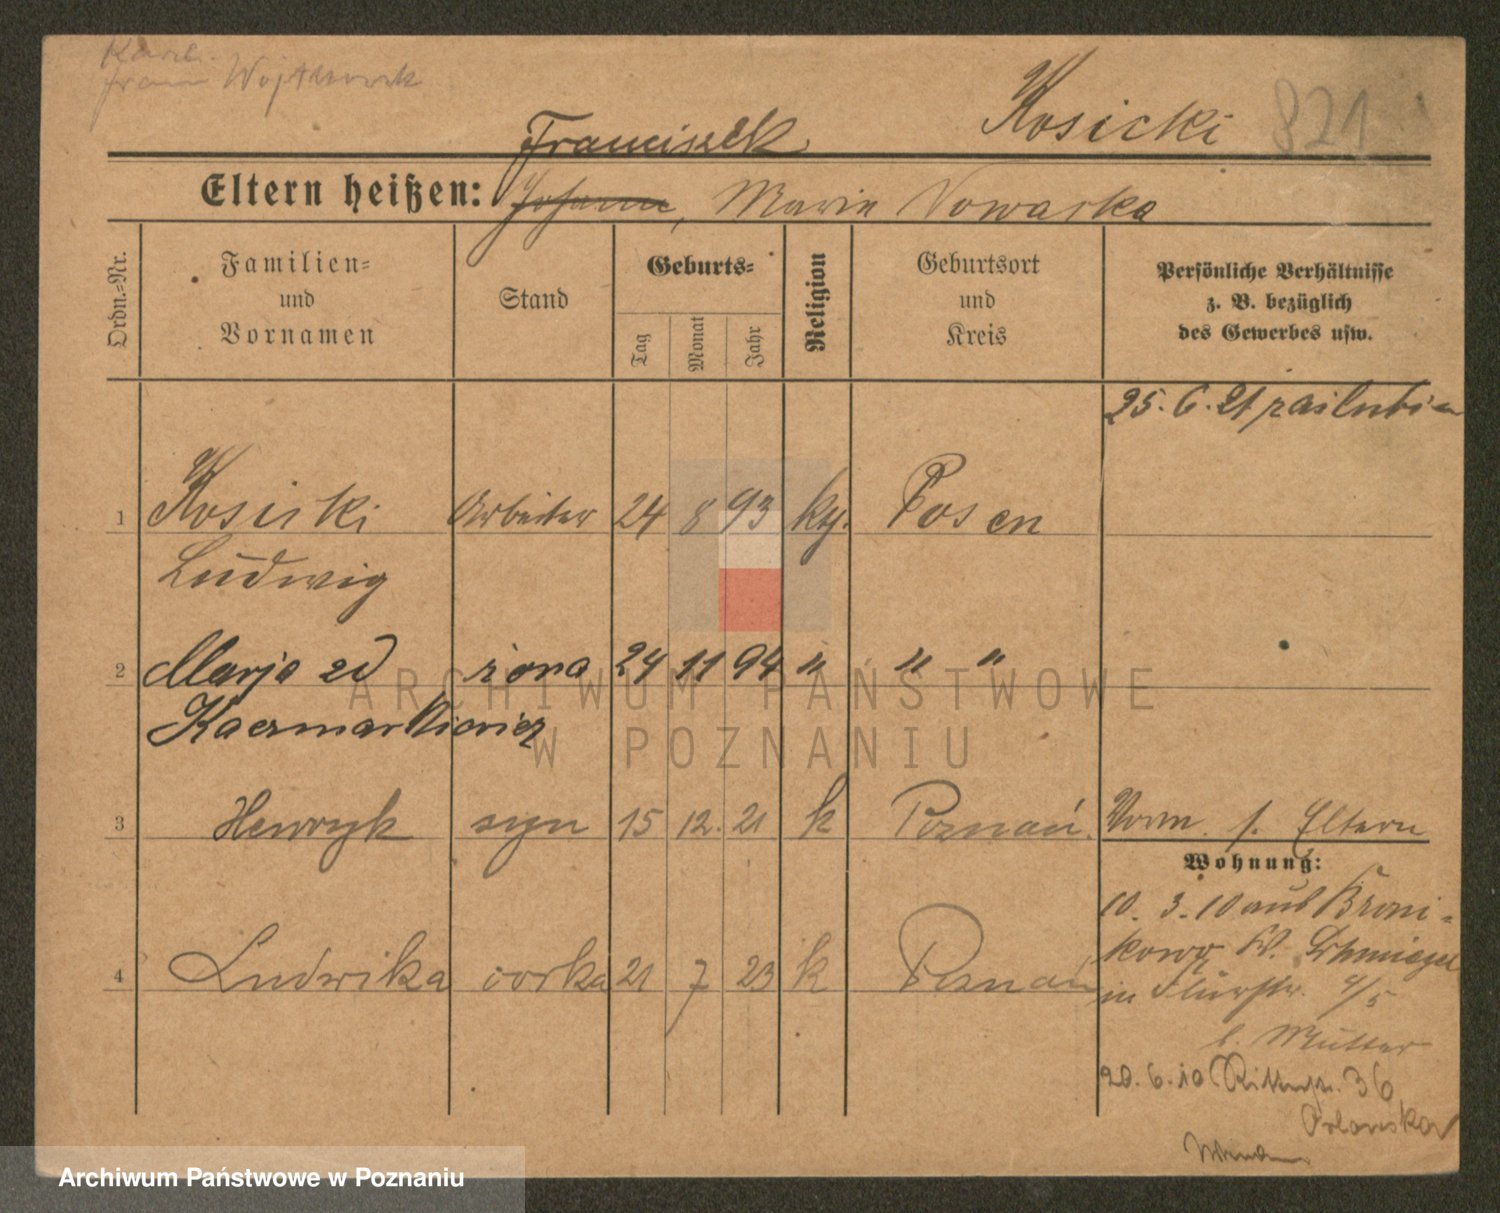 Frau Wojtkowiak
Kosicki 821
Franciszek
Eltern heißen: Johann, Marie Nowacka
Ordn.-Nr.
Familien-
und
Vornamen
Stand
Geburts-
Tag
Monat
Jahr
Religion
Geburtsort
und
Kreis
Persönliche Verhältnisse
z. B. bezüglich
des Gewerbes usw.
25. 6. 21 zaślubien
1 Kosicki Arbeiter 24 8 93 kg. Posen
Ludwig
2 Marja zd żona 24 11 94 " " "
Kaczmarkiewicz
3 Henryk syn 15 12. 21 k Poznań. Vorm. s. Eltern
Wohnung:
10. 3. 10 aus Broni-
kowo Kr. Schmiegel
4 Ludwika córka 21 7 23 k Poznań
in Flurstr. 4/5
b. Mutter
20. 6. 10 Ritterstr. 36
ARCHIWUM PAŃSTWOWE
W POZNANIU
Archiwum Państwowe w Poznaniu